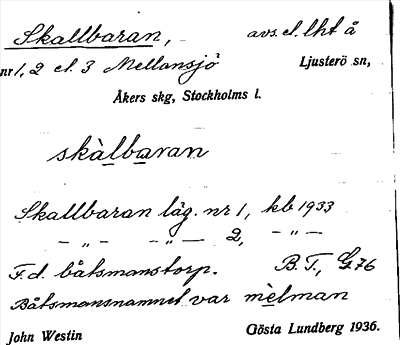 Skallbaran, avs. el. lht å
nr 1, 2 el. 3 Mellansjö Ljusterö sn,
Åkers skg, Stockholms l.
skàlbaran
Skallbaran läg. nr 1, kb 1933
– „ – – „ – 2, – „ –
F. d. båtsmanstorp. B. T., G 76
Båtsmansnamnet var mèlman
John Westin Gösta Lundberg 1936.